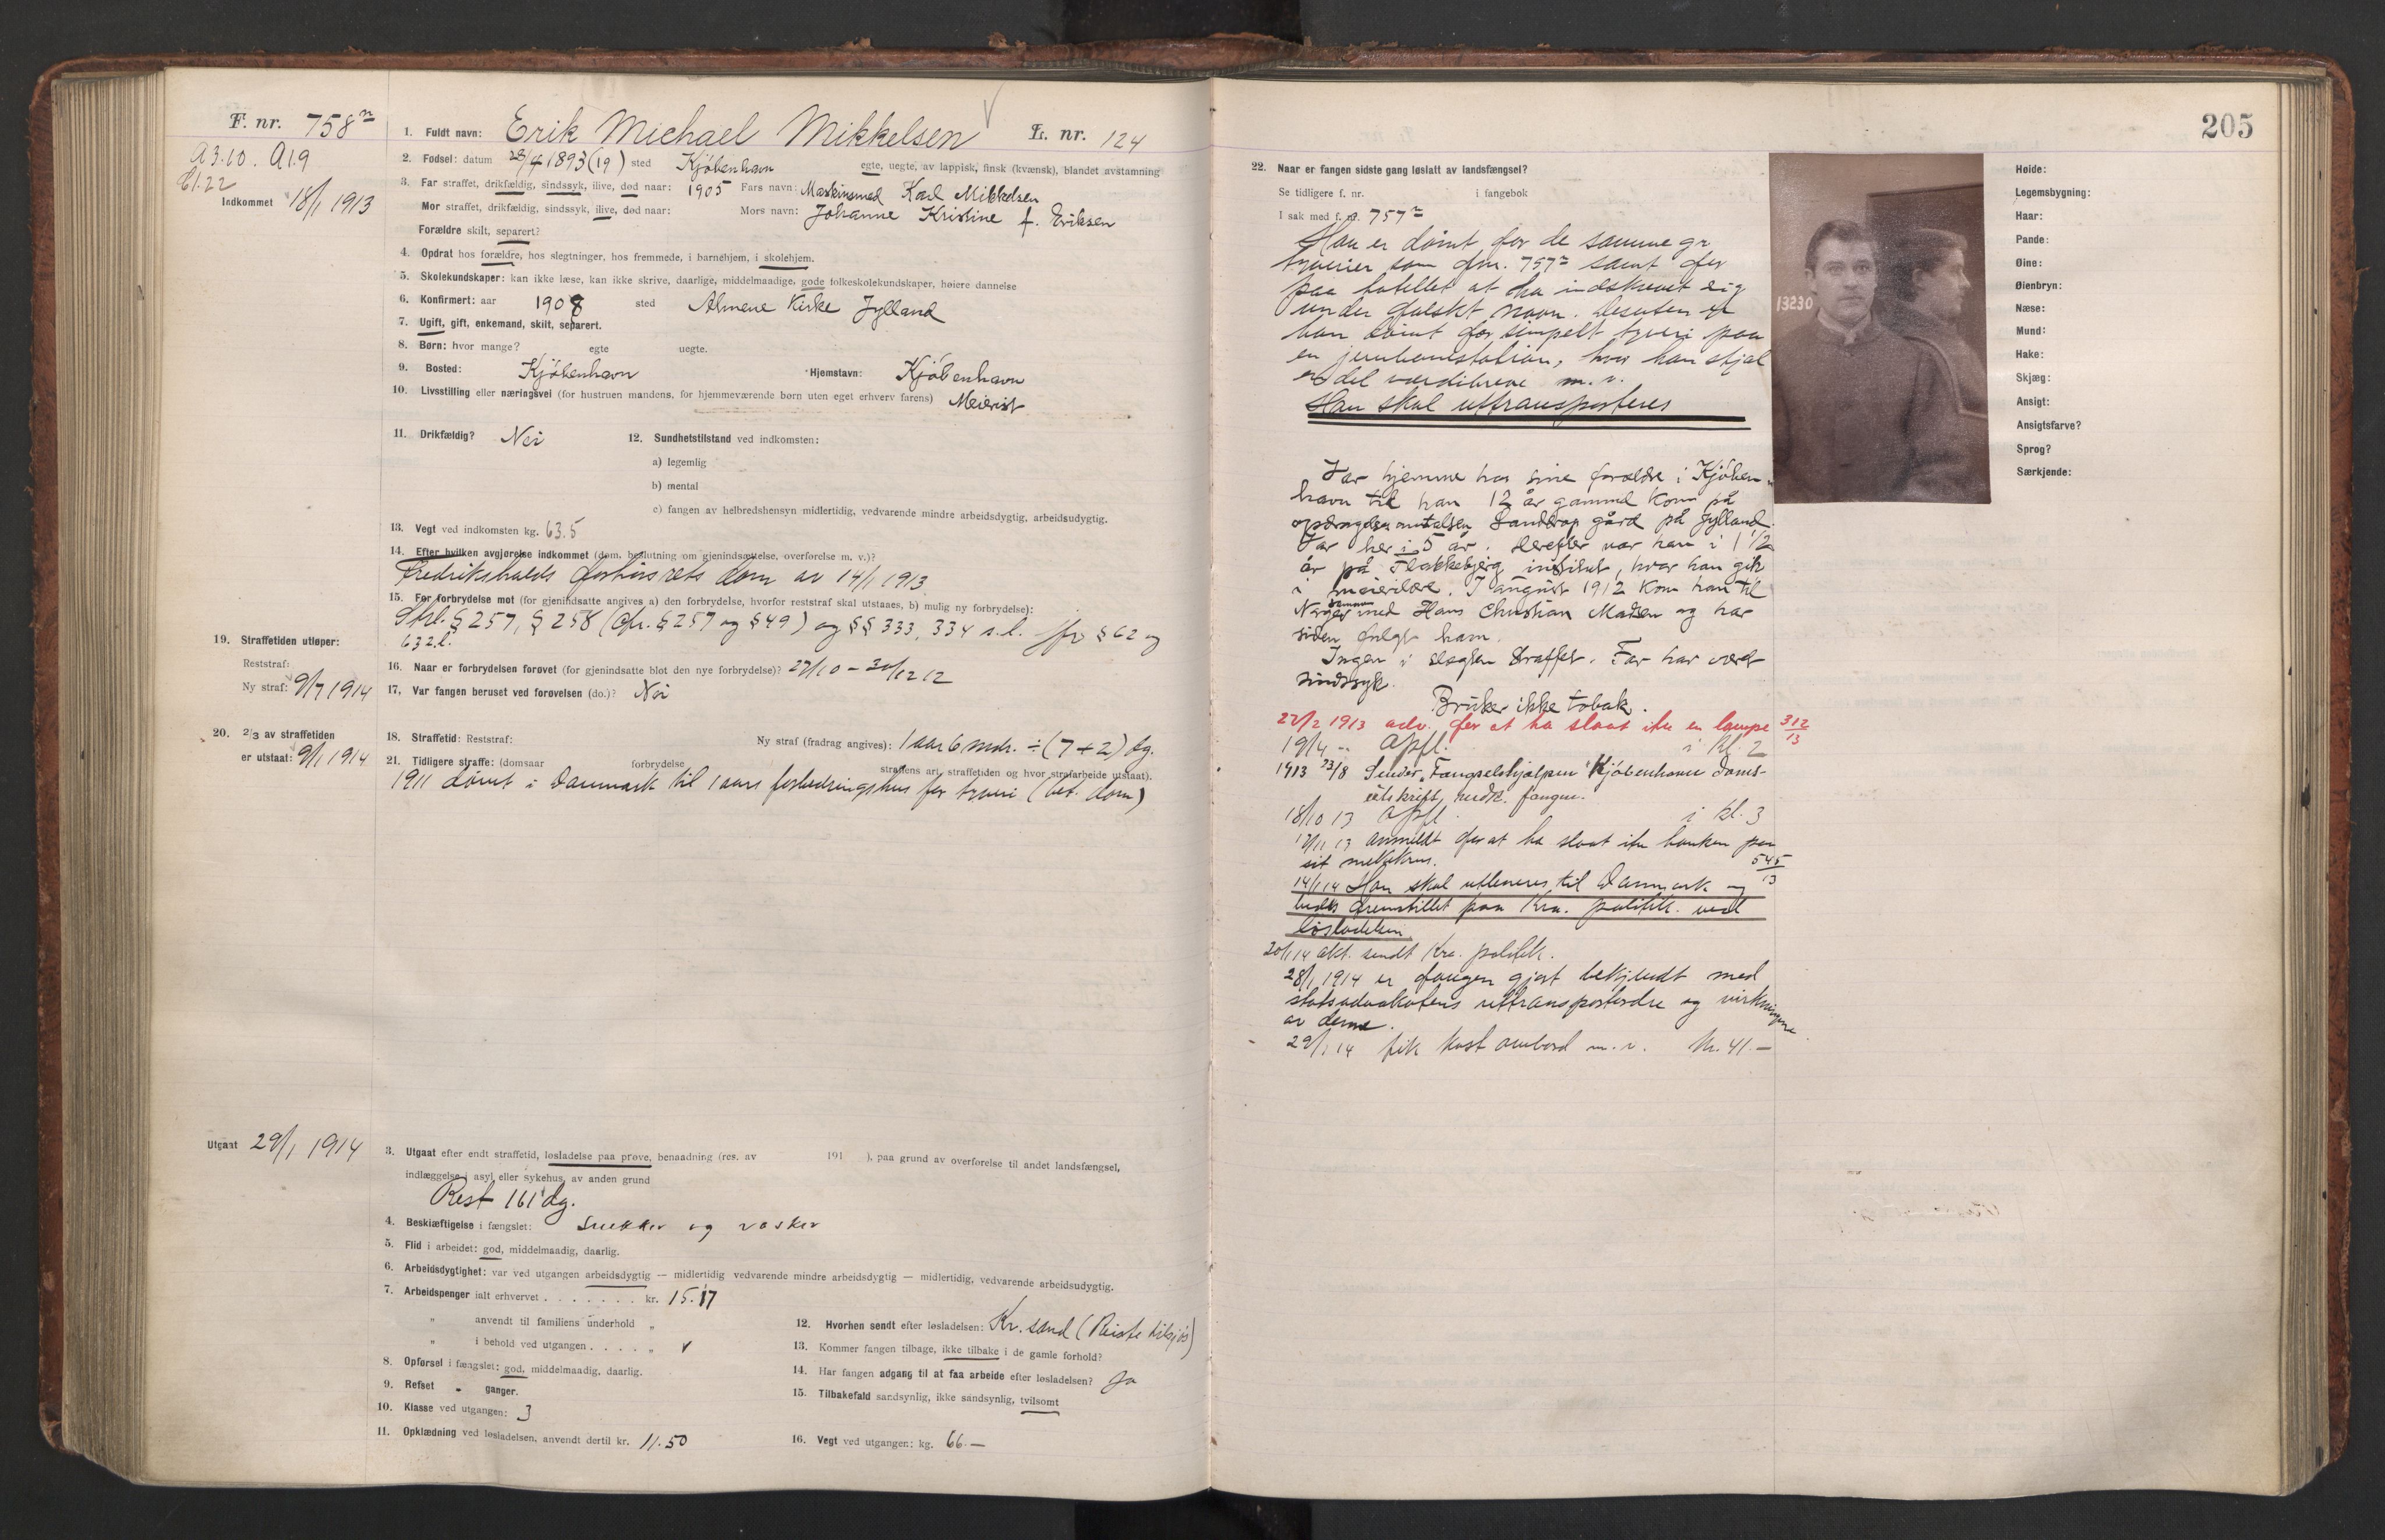 F. nr. 758n
A3.10. A1.9
C1.22
Indkommet 18/1 1913
1. Fuldt navn: Erik Michael Mikkelsen L. nr. 124
2. Fødsel: datum 28/4 1893 (19) sted Kjöbenhavn egte, uegte, av lappisk, finsk (kvænsk), blandet avstamning
3. Far straffet, drikfældig, sindssyk, ilive, død naar: 1905 Fars navn: Maskinsmed Karl Mikkelsen
Mor straffet, drikfældig, sindssyk, ilive, død naar: Mors navn: Johanne Kristine f. Eriksen
Forældre skilt, separert?
4. Opdrat hos forældre, hos slegtninger, hos fremmede, i barnehjem, i skolehjem.
5. Skolekundskaper: kan ikke læse, kan ikke skrive, daarlige, middelmaadige, gode folkeskolekundskaper, høiere dannelse
6. Konfirmert: aar 1908 sted Almene Kirke Jylland
7. Ugift, gift, enkemand, skilt, separert.
8. Børn: hvor mange? egte uegte.
9. Bosted: Kjöbenhavn Hjemstavn: Kjöbenhavn
10. Livsstilling eller næringsvei (for hustruen mandens, for hjemmeværende børn uten eget erhverv farens) Meierist
11. Drikfældig? Nei 12. Sundhetstilstand ved indkomsten:
a) legemlig
b) mental
c) fangen av helbredshensyn midlertidig, vedvarende mindre arbeidsdygtig, arbeidsudygtig.
13. Vegt ved indkomsten kg. 63.5
14. Efter hvilken avgjørelse indkommet (dom, beslutning om gjenindsættelse, overførelse m. v.)?
Fredrikshalds forhörsrets dom av 14/1 1913.
15. For forbrydelse mot (for gjenindsatte angives a) den forbrydelse, hvorfor reststraf skal utstaaes, b) mulig ny forbrydelse):
Strl. § 257, § 258 (cfr. § 257 og § 49) og §§ 333, 334 s.l. jfr § 62 og
63 2.l.
19. Straffetiden utløper:
Reststraf:
Ny straf: 9/7 1914
16. Naar er forbrydelsen forøvet (for gjenindsatte blot den nye forbrydelse)? 27/10 – 30/12 12
17. Var fangen beruset ved forøvelsen (do.)? Nei
20. 2/3 av straffetiden
er utstaat: 9/1 1914
18. Straffetid: Reststraf: Ny straf (fradrag angives): 1 aar 6 mdr. ÷ (7+2) dg.
21. Tidligere straffe: (domsaar forbrydelse straffens art, straffetiden og hvor strafarbeide utstaat).
1911 dömt i Danmark til 1 aars forbedringshus for tyveri (bet. dom)
Utgaat 29/1 1914
3. Utgaat efter endt straffetid, løsladelse paa prøve, benaadning (res. av 191 ), paa grund av overførelse til andet landsfængsel,
indlæggelse i asyl eller sykehus, av anden grund
Rest 161 dg.
4. Beskjæftigelse i fængslet: Snekker og vasker
5. Flid i arbeidet: god, middelmaadig, daarlig.
6. Arbeidsdygtighet: var ved utgangen arbeidsdygtig — midlertidig vedvarende mindre arbeidsdygtig — midlertidig, vedvarende arbeidsudygtig.
7. Arbeidspenger ialt erhvervet . . . . . . . kr. 15.17
" anvendt til familiens underhold "
" i behold ved utgangen . . . . "
8. Opførsel i fængslet: god, middelmaadig, daarlig.
9. Refset - ganger.
10. Klasse ved utgangen: 3
11. Opklædning ved løsladelsen, anvendt dertil kr. 11.50
12. Hvorhen sendt efter løsladelsen: Kr. sand (Reiste tilsjös)
13. Kommer fangen tilbage, ikke tilbake i de gamle forhold?
14. Har fangen adgang til at faa arbeide efter løsladelsen? Ja
15. Tilbakefald sandsynlig, ikke sandsynlig, tvilsomt
16. Vegt ved utgangen: kg. 66.—
205
22. Naar er fangen sidste gang løslatt av landsfængsel?
Se tidligere f. nr. i fangebok
I sak med f. nr. 757n
Han er dömt for de samme gr.
tyverier som fnr. 757n samt for
paa hotellet at ha indskrevet sig
under falskt navn. Desuten er
han dömt for simpelt tyveri paa
en jernbanestation, hvor han stjal
en del værdibreve m.v.
Han skal uttransporteres
Var hjemme hos sine forældre i Kjöben-
havn til han 12 år gammel kom på
opdragelsesanstalten Landerup gård på Jylland.
Var her i 5 år. Derefter var han i 1 1/2
år på Flakkebjerg institut, hvor han gik
i meierilære. I august 1912 kom han til
Norge sammen med Hans Christian Madsen og har
siden fulgt ham.
Ingen i slegten straffet. Far har været
sindssyk.
Bruker ikke tobak.
22/2 1913 adv. for at ha slaat itu en lampe 312/13
19/4 -- Opfl. i kl. 2
1913 23/8 Sender "Fængselshjælpen" Kjöbenhavn doms-
utskrift, vedk. fangen.
18/10 13 Opfl. i kl. 3
12/11 13 anmeldt for at ha slaat itu hanken paa
sit melkekrus. 545/13
14/1 14 Han skal utleveres til Danmark og
bedes fremstillet paa Kra. politik. ved
lösladelsen.
20/1 14 akt. sendt Kra. politik.
28/1 1914 er fangen gjort bekjendt med
statsadvokatens uttransportordre og virkningene
av denne.
29/1 14 fik kost ombord m. v. Kr. 41.—
13230
Høide:
Legemsbygning:
Haar:
Pande:
Øine:
Øienbryn:
Næse:
Mund:
Hake:
Skjæg:
Ansigt:
Ansigtsfarve?
Sprog?
Særkjende: